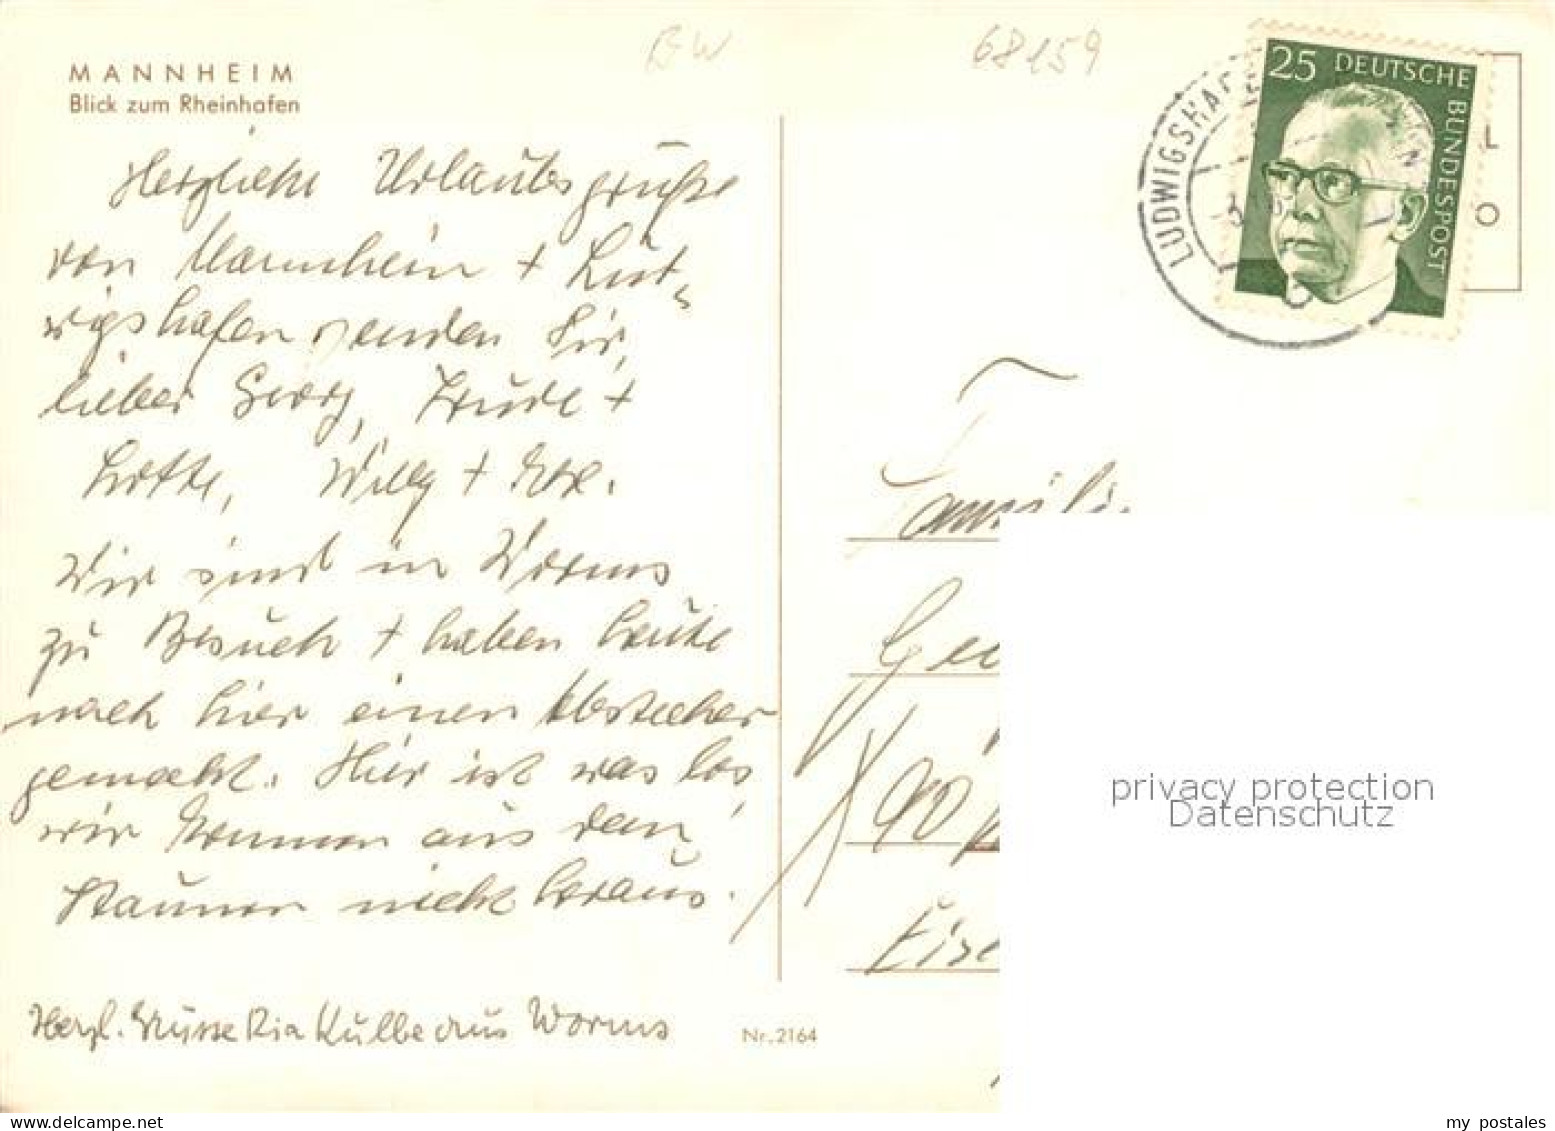 BW
68159
MANNHEIM
Blick zum Rheinhafen
25 DEUTSCHE BUNDESPOST
LUDWIGSHAF
L
O
Herzliche Urlaubsgrüße
von Mannheim + Lud-
wigshafen senden Dir,
lieber Georg, Trude +
Lotte, Willy +
Wir sind in Worms
zu Besuch + haben heute
nach hier einen Abstecher
gemacht. Hier ist was los,
wir kommen aus dem
Staunen nicht heraus.
Herzl. Grüsse Ria Kulbe aus Worms
Nr. 2164
Famili
Ge
90
Eise
privacy protection
Datenschutz
my postales